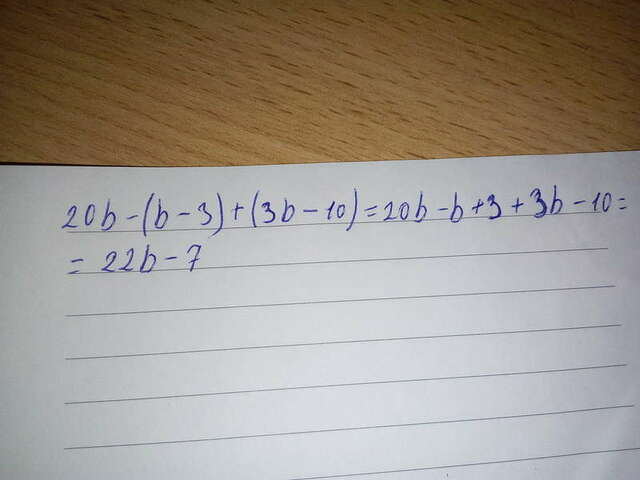 20b-(b-3)+(3b-10)=20b-b+3+3b-10=
= 22b-7